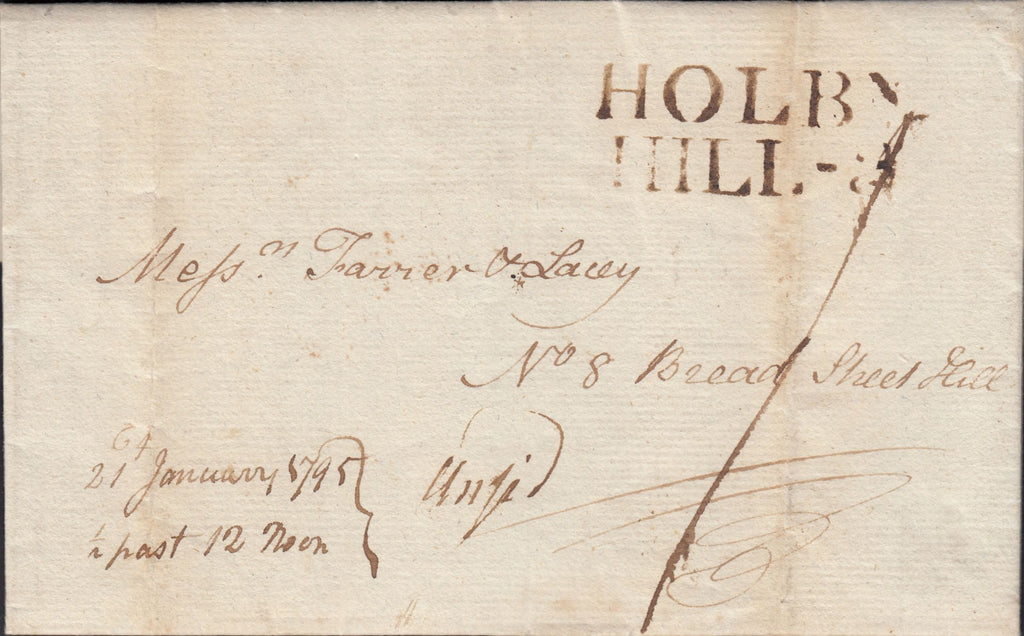 HOLBN
HILL-3
Mess.rs Farrer & Lacey
No 8 Bread Street Hill
21t January 1795
½ past 12 Noon